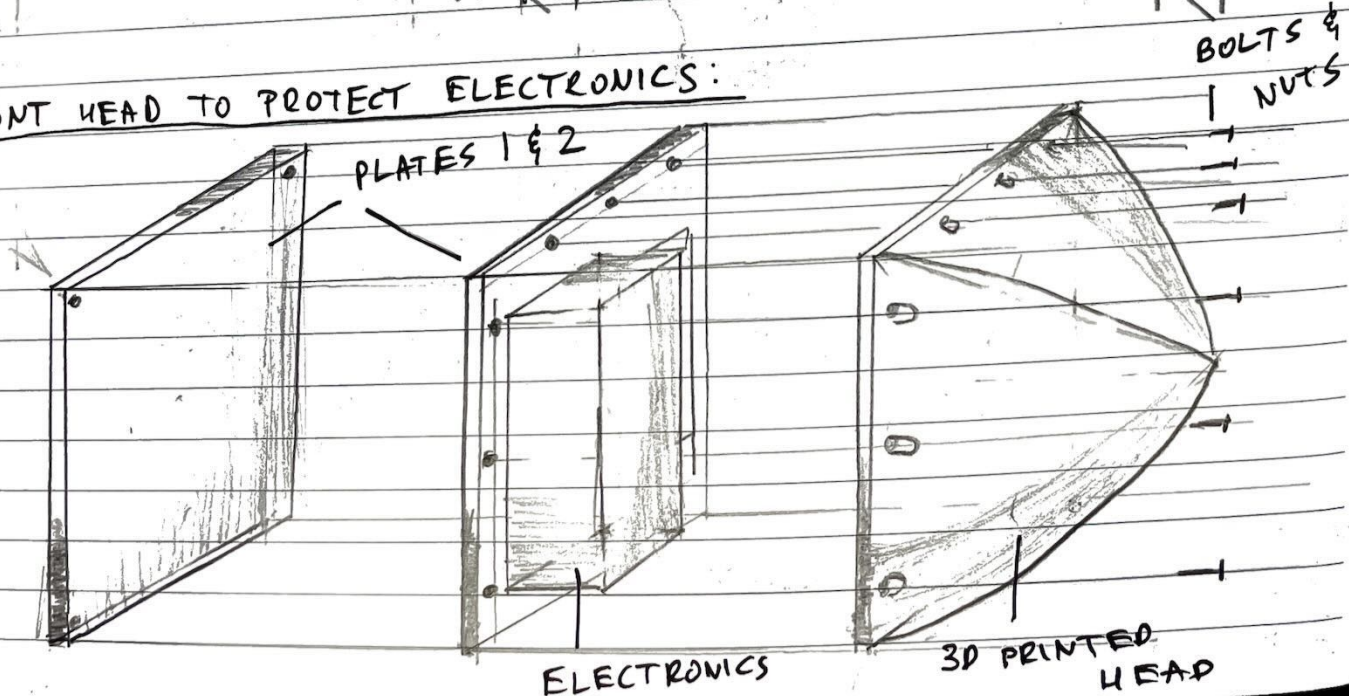 NT HEAD TO PROTECT ELECTRONICS:
BOLTS &
NUTS
PLATES 1 & 2
ELECTRONICS
3D PRINTED
HEAD